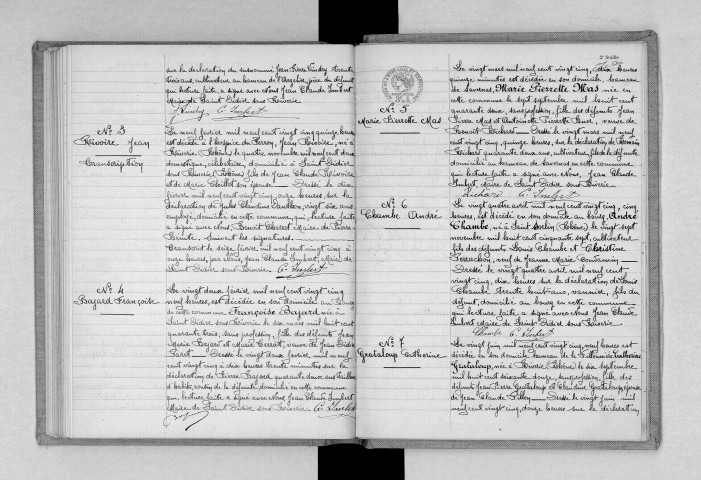 sur la déclaration du surnommé Jean Pierre Vindry trente
trois ans, cultivateur au hameau de l'Argelas, père du défunt
qui lecture faite a signé avec Nous Jean Claude Imbert
Maire de Saint Didier sous Riverie
Vindry C. Imbert
N° 3
Rivoire Jean
Transcription
Le neuf février mil neuf cent vingt cinq, quinze heures
est décédé à l'hospice du Perron, Jean Rivoire, né à
Riverie (Rhône) le quatre novembre mil neuf cent deux
domestique, célibataire, domicilié à Saint Didier
sous Riverie (Rhône) fils de Jean Claude Rivoire
et de Marie son épouse. Dressé le dix
février mil neuf cent vingt cinq, onze heures sur la
déclaration de Jules Claudius vingt six ans
employé, domicilié en cette commune, qui, lecture faite
a signé avec Nous, Benoît Charret Maire de Pierre-
Bénite. Suivent les signatures.
Transcrit le seize février, mil neuf cent vingt cinq à
onze heures, par Nous, Jean Claude Imbert, Maire de
Saint Didier sous Riverie. C. Imbert
N° 4
Bajard Françoise
Le vingt deux février, mil neuf cent vingt cinq
neuf heures, est décédée en son domicile au Bourg
de cette commune Françoise Bajard née à
Saint Didier sous Riverie le six mars mil huit cent
quarante trois, sans profession, fille des défunts Jean
Marie Bajard et Marie veuve de Jean Didier
Dressé le vingt deux février mil neuf
cent vingt cinq à dix heures trente minutes sur la
déclaration de Pierre Bajard, quarante deux ans
cousin de la défunte domicilié en cette commune
qui, lecture faite a signé avec Nous Jean Claude Imbert
Maire de Saint Didier sous Riverie C. Imbert
2e feuille
N° 5
Marie Pierrette Mas
Le vingt mars mil neuf cent vingt cinq, dix heures
quinze minutes est décédée en son domicile hameau
de Marie Pierrette Mas, née en
cette commune le sept septembre mil huit cent
quarante deux, sans profession, fille des défunts Jean
Pierre Mas et Antoinette Pierrette veuve de
Benoît Richard. Dressé le vingt mars mil neuf
cent vingt cinq, quinze heures, sur la déclaration de
Richard quarante deux ans, cultivateur fils de la défunte
domicilié au hameau de en cette commune
qui lecture faite a signé avec Nous, Jean Claude
Imbert, Maire de Saint Didier sous Riverie.
Richard C. Imbert
N° 6
Chambe André
Le vingt quatre avril mil neuf cent vingt cinq, cinq
heures, est décédé en son domicile au bourg, André
Chambe, né à Saint Sorlin (Rhône) le vingt sept
novembre mil huit cent cinquante sept, cultivateur
fils des défunts Louis Chambe et Christine
veuf de Jeanne Marie
Dressé le vingt quatre avril mil neuf cent
vingt cinq, dix heures sur la déclaration de Louis
Chambe trente huit ans, vannier, fils du
défunt, domicilié au bourg en cette commune
qui lecture faite a signé avec Nous Jean Claude
Imbert Maire de Saint Didier sous Riverie
Chambe C. Imbert
N° 7
Grataloup Catherine
Le vingt juin, mil neuf cent vingt cinq, neuf heures est
décédée en son domicile hameau de Catherine
Grataloup, née à (Rhône) le dix septembre
mil huit cent soixante douze, sans profession, fille des
défunts Jean Pierre Grataloup et Claudine Grataloup, épouse
de Jean Claude Pilloy. Dressé le vingt juin mil
neuf cent vingt cinq, douze heures sur la déclaration